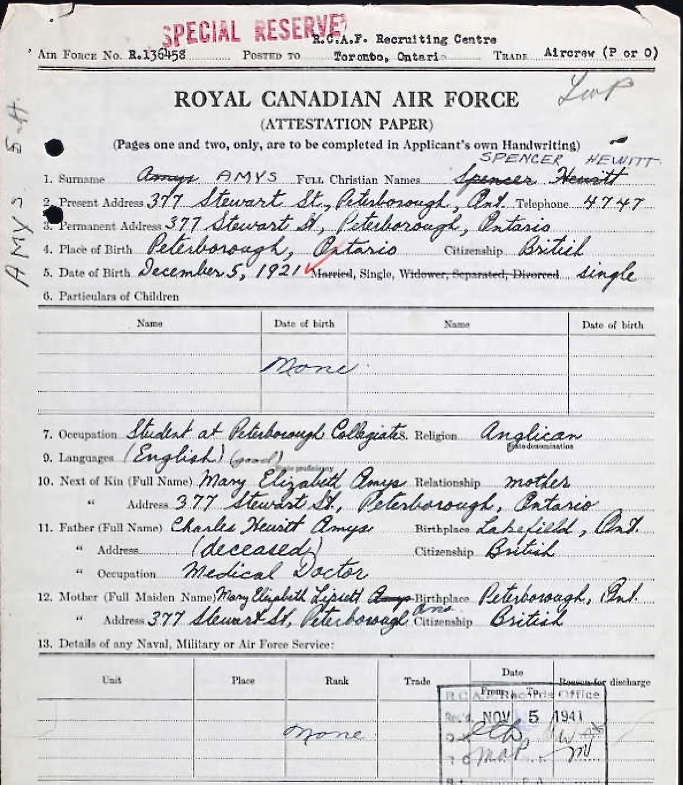 SPECIAL RESERVE
R.C.A.F. Recruiting Centre
AIR FORCE NO. R.136458 POSTED TO Toronto, Ontario TRADE Aircrew (P or O)
ROYAL CANADIAN AIR FORCE
(ATTESTATION PAPER)
(Pages one and two, only, are to be completed in Applicant's own Handwriting)
AMYS S.H.
SPENCER HEWITT
1. Surname Amys AMYS FULL Christian Names Spencer Hewitt
2. Present Address 377 Stewart St., Peterborough, Ont. Telephone 4747
3. Permanent Address 377 Stewart St, Peterborough, Ontario
4. Place of Birth Peterborough, Ontario Citizenship British
5. Date of Birth December 5, 1921 Married, Single, Widower, Separated, Divorced single
6. Particulars of Children
Name Date of birth Name Date of birth
None
7. Occupation Student at Peterborough Collegiate 8. Religion Anglican
State denomination
9. Languages (English) (good)
State proficiency
10. Next of Kin (Full Name) Mary Elizabeth Amys Relationship mother
" Address 377 Stewart St., Peterborough, Ontario
11. Father (Full Name) Charles Hewitt Amys Birthplace Lakefield, Ont.
" Address (deceased) Citizenship British
" Occupation Medical Doctor
12. Mother (Full Maiden Name) Mary Elizabeth Lipsett Amys Birthplace Peterborough, Ont.
" Address 377 Stewart St, Peterborough Ont Citizenship British
13. Details of any Naval, Military or Air Force Service:
Unit Place Rank Trade Date Reason for discharge
From To
R.C.A.F. Records Office
Rec'd. NOV 5 1941
None